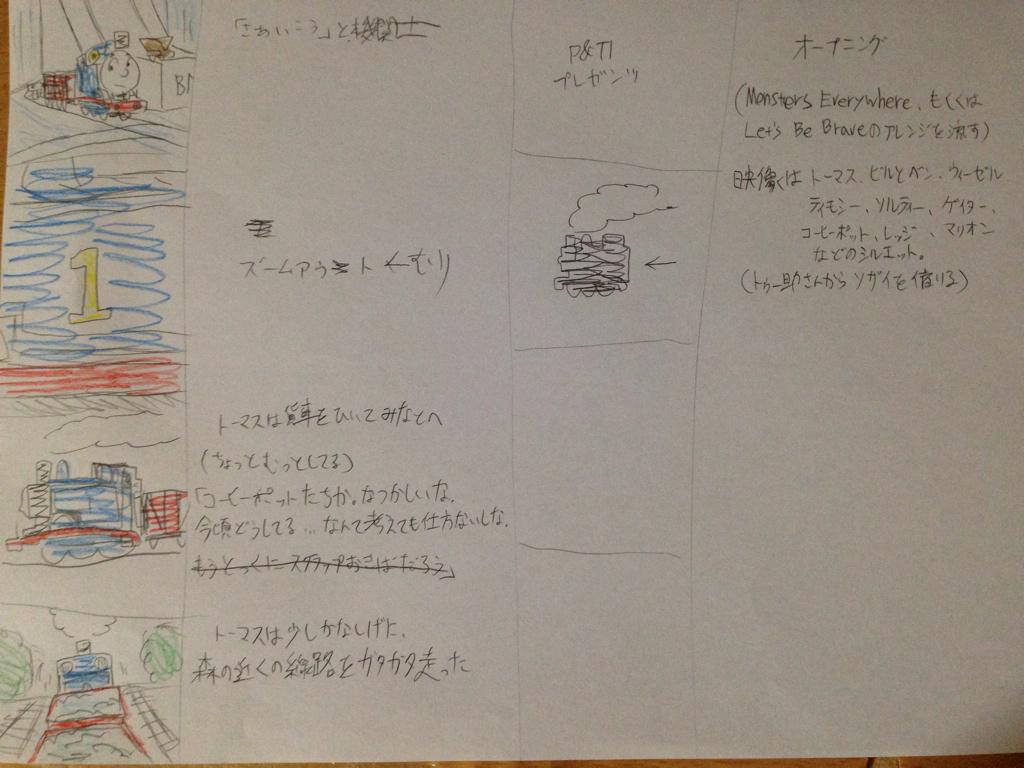 「さあいこう」と機関士
1
ズームアウト ← むり
トーマスは貨車をひいてみなとへ
(ちょっとむっとしてる)
「コーヒーポットたちか。なつかしいな。
今頃どうしてる…なんて考えても仕方ないしな。
もうとっくにスクラップおきばだろう」
トーマスは少しかなしげに、
森の近くの線路をガタガタ走った
P&TI
プレゼンツ
←
オープニング
(Monsters Everywhere、もしくは
Let's Be Braveのアレンジを流す)
映像は トーマス、ビルとベン、ウィーゼル
ティモシー、ソルティー、ゲイター、
コーヒーポット、レッジー、マリオン
などのシルエット。
(トゥー助さんからソザイを借りる)